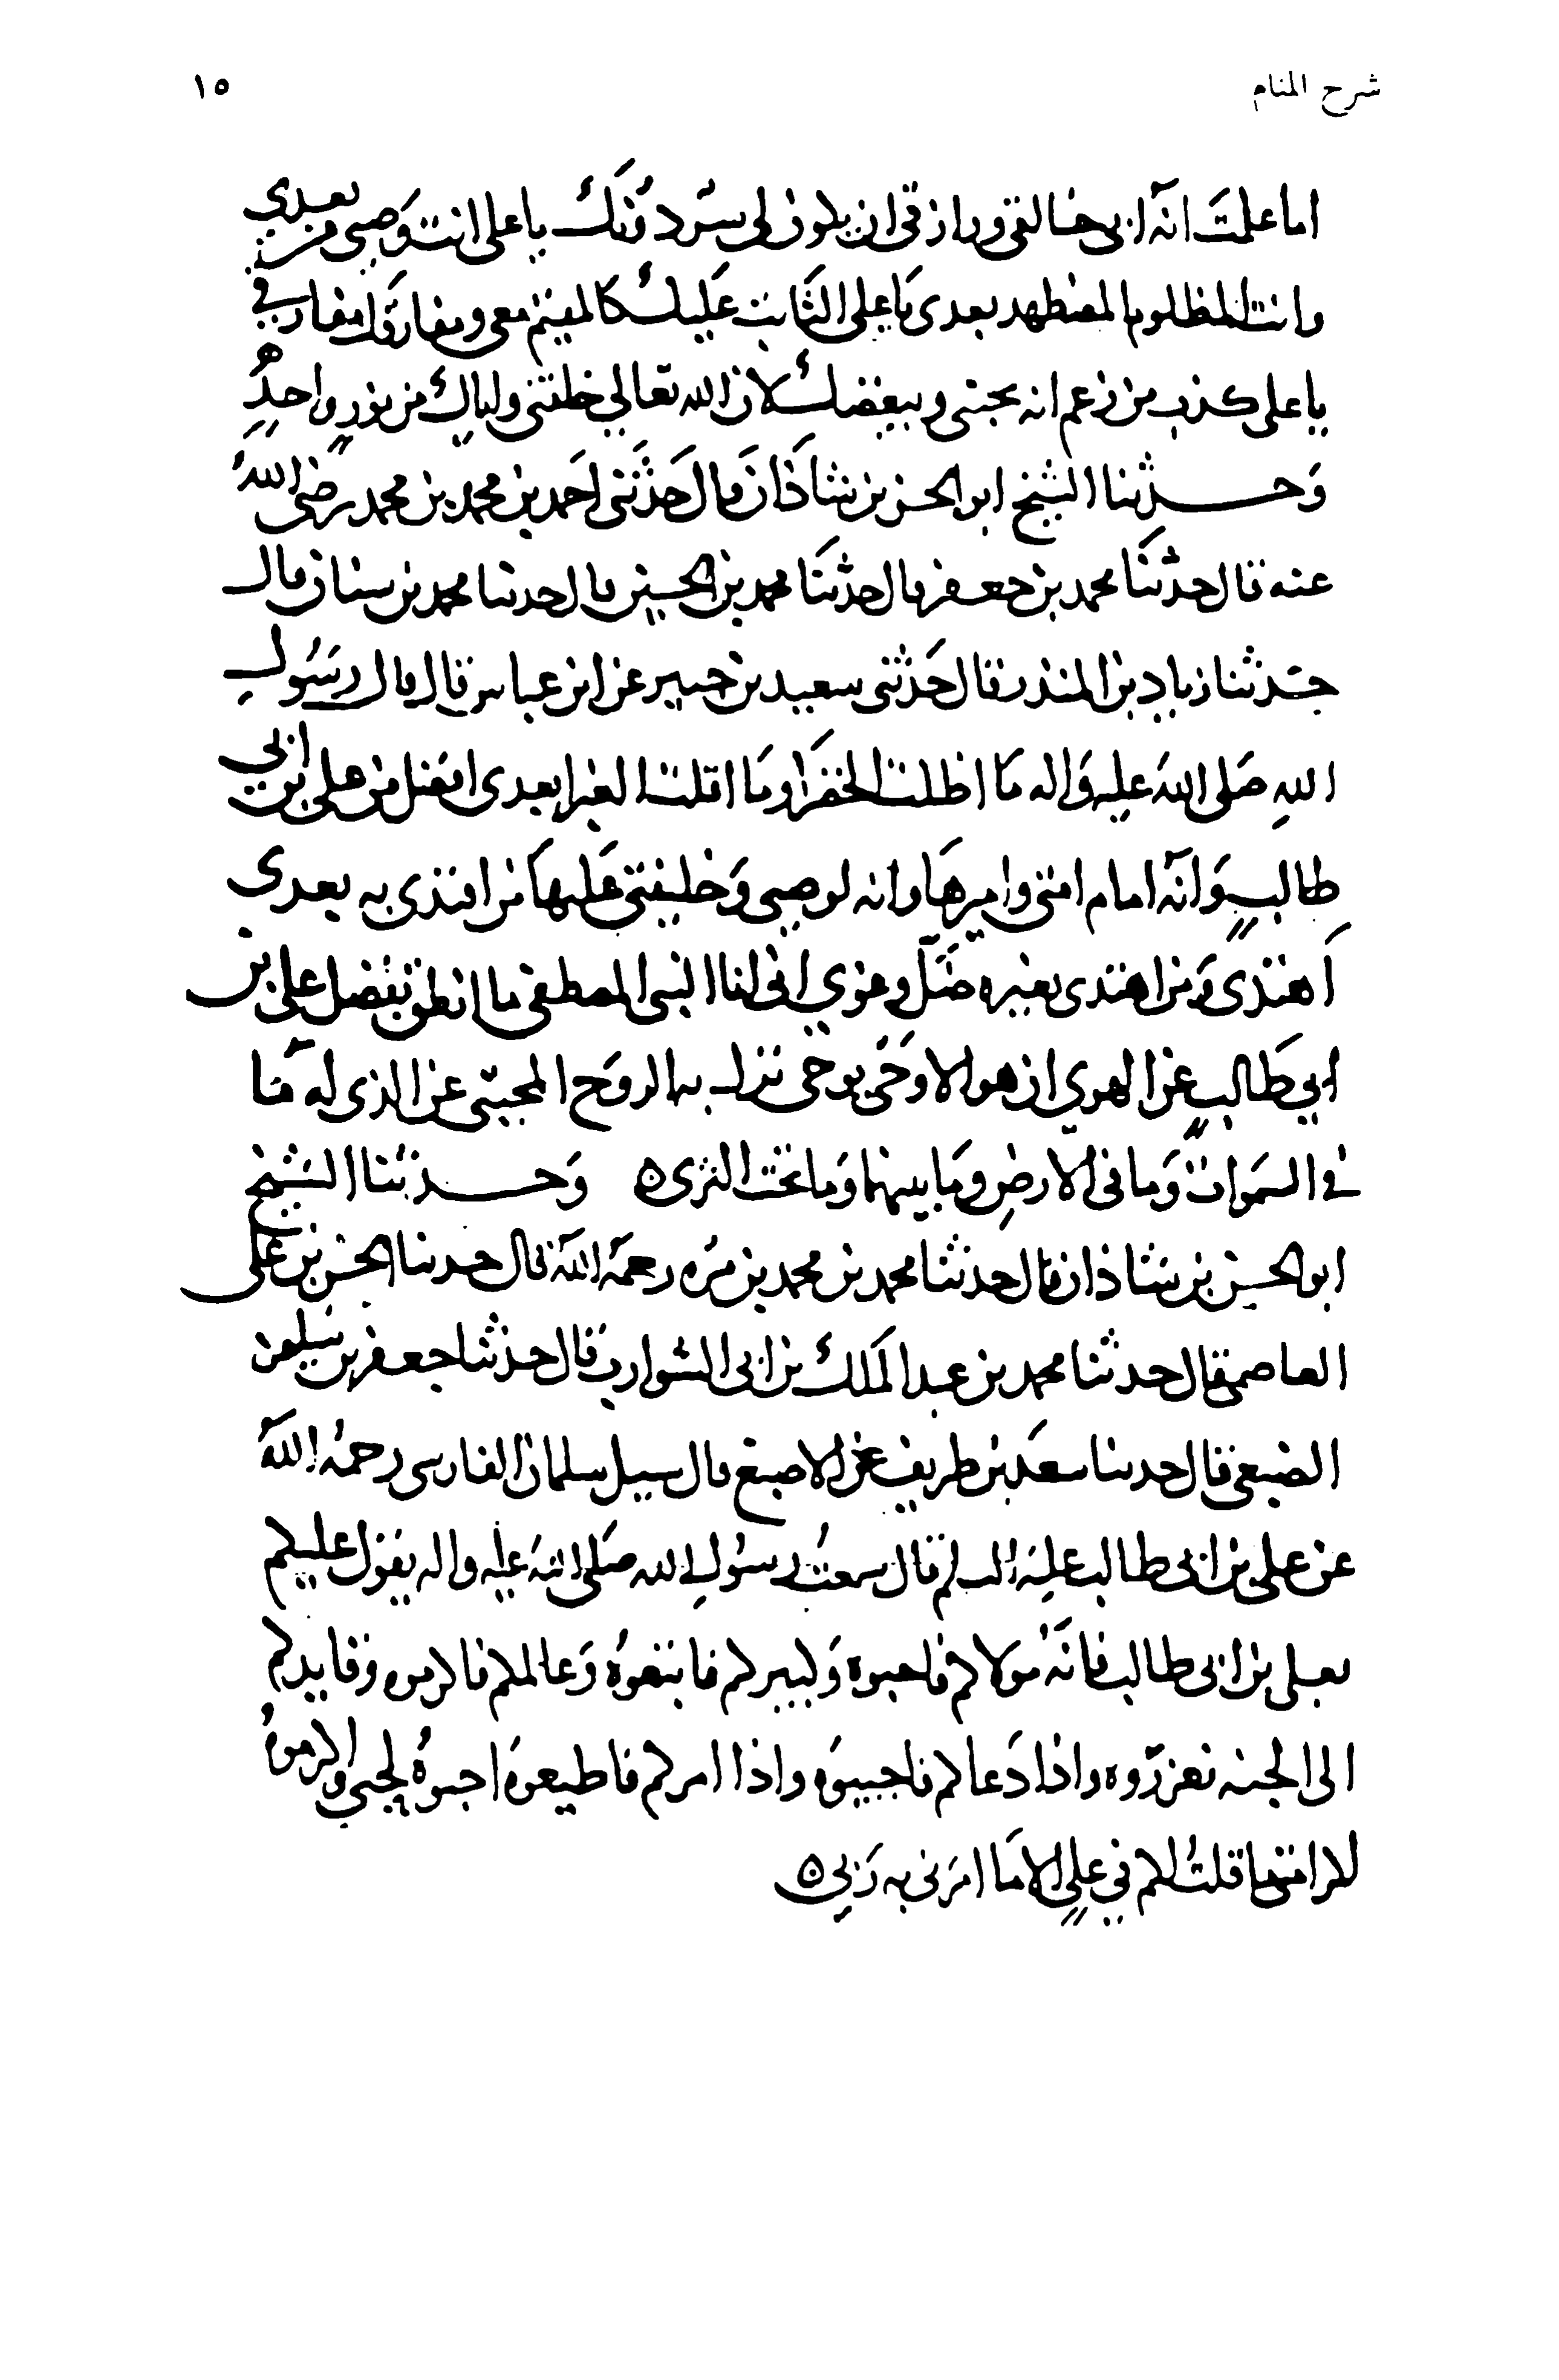 شرح المنام
١٥
اما علمتَ انّه ابى خالقى ورازقى ان يكون لى سرّ دونك يا على انت وصيى من بعدى
وانت المظلوم المضطهد بعدى يا على الثابت عليك كالمقيم معى ومفارقك مفارقى
يا على كذب من زعم انه يحبنى ويبغضك لان الله تعالى خلقنى واياك من نور واحدٍ
وحدثنا الشيخ ابو الحسن بن شاذان قال حَدثَنى احَمد بن محمد بن محمد رضى الله
عنه قال حدثنا محمد بن جعفر قال حدثنَا محمد بن الحسين قال حدثنا محمد بن سنان قال
حدثنا زياد بن المنذر قال حَدثنى سعيد بن جبير عن ابن عباس قال قال رسُول
اللهِ صَلى اللهُ عليه وَاله مَا اظلت الخضرا ومَا اقلت الغبرا بعدى افضل من على بن ابى
طالبٍ وَانّه امام امتى واميرهَا وانه لوصيى وَخليفتى عَليهَا من اقتدى به بعدى
اَهتدى وَمن اهتدى بغيره ضَلّ وغوي انى انا النبى المصطفى ما انطق بفضل على بن
ابي طَالبٍ عن الهوي ان هو الا وَحَى يوحى نزل به الروح المجتبى عن الذى له مَا
فى السمَوات وَما فى الارضِ ومَا بينهما وَما تحَت الثرى ٥ وَحدثنا الشيخ
ابو الحسن بن شاذان قال حدثنا محمد بن محمد بن مرّه رحمهُ الله قال حدثنا الحسن بن على
العاصمى قال حدثنا محمد بن عبد الملك بن ابى الشوارب قال حدثنا جعفر بن سليمن
الضبعى قال حدثنا سعَد بن طريف عن الاصبغ قال سيل سلمان الفارسى رحمهُ اللهُ
عن على بن ابى طالب عليه السلم قال سمعتُ رسُول الله صَلى اللهُ عليْه واله يقول عليكم
بعلى بن ابى طالب فانّه مَولاكم فاحبوه وَكبيركم فاتبعوُه وَعالمكم فاكرموه وَقايدكم
الى الجنه فعزّروه واذا دَعاكم فاجيبوُه واذا امركم فاطيعوهُ احبوُه لحبى واكرموهُ
لكرامتى ما قلتُ لكم في عليٍ الا مَا امرَنى به رَبى ٥